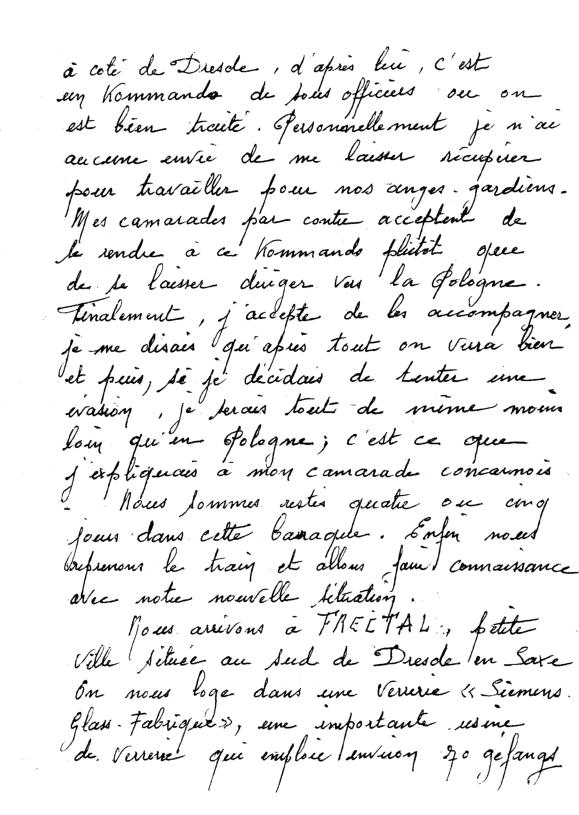 à coté de Dresde, d'après lui, c'est
un Kommando de sous officiers ou on
est bien traité. Personnellement je n'ai
aucune envie de me laisser récupérer
pour travailler pour nos anges-gardiens.
Mes camarades par contre acceptent de
se rendre à ce Kommando plutôt que
de se laisser diriger vers la Pologne.
Finalement, j'accepte de les accompagner,
je me disais qu'après tout on verra bien
et puis, si je décidais de tenter une
évasion, je serais tout de même moins
loin qu'en Pologne; c'est ce que
j'expliquais à mon camarade concarnois
Nous sommes restés quatre ou cinq
jours dans cette baraque. Enfin nous
reprenons le train et allons faire connaissance
avec notre nouvelle situation.
Nous arrivons à FREITAL, petite
ville située au sud de Dresde en Saxe
On nous loge dans une verrerie « Siemens.
Glass-Fabrique», une importante usine
de verrerie qui emploie environ 70 gefangs